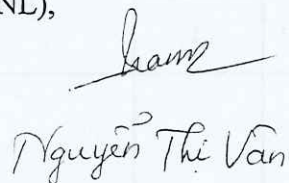 NL),
Nguyễn Thị Vân